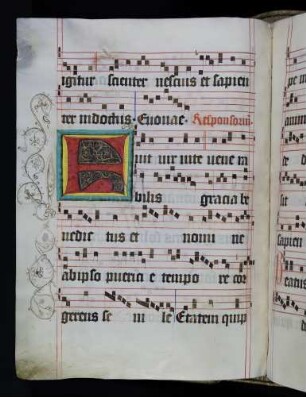 igitur scienter nescius et sapien
ter indoctus. Euouae Responsoriu
Fuit uir uite uenera
bilis gracia be
nedic tus et nomi ne
ab ipso puericie tempo re cor
gerens se ni le Etatem quip
sapien